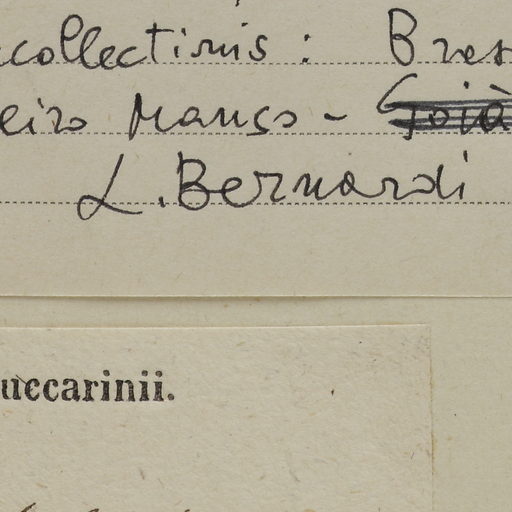 collectinis: Bres
eiro Manso - Goià
L. Bernardi
uccarinii.